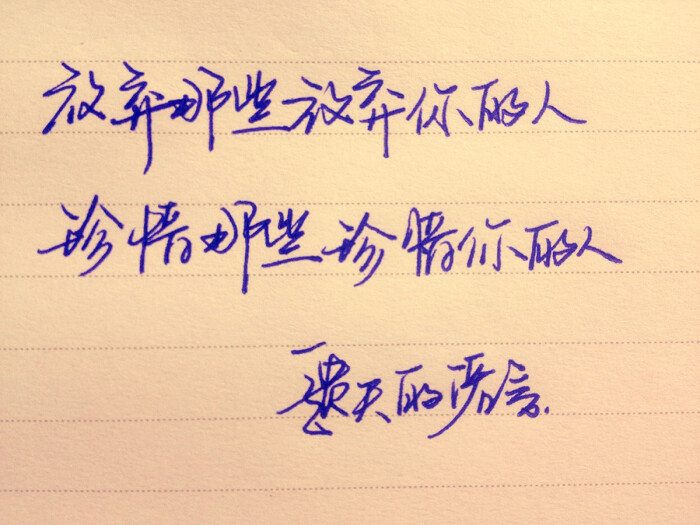 放弃那些放弃你的人
珍惜那些珍惜你的人
天的语言